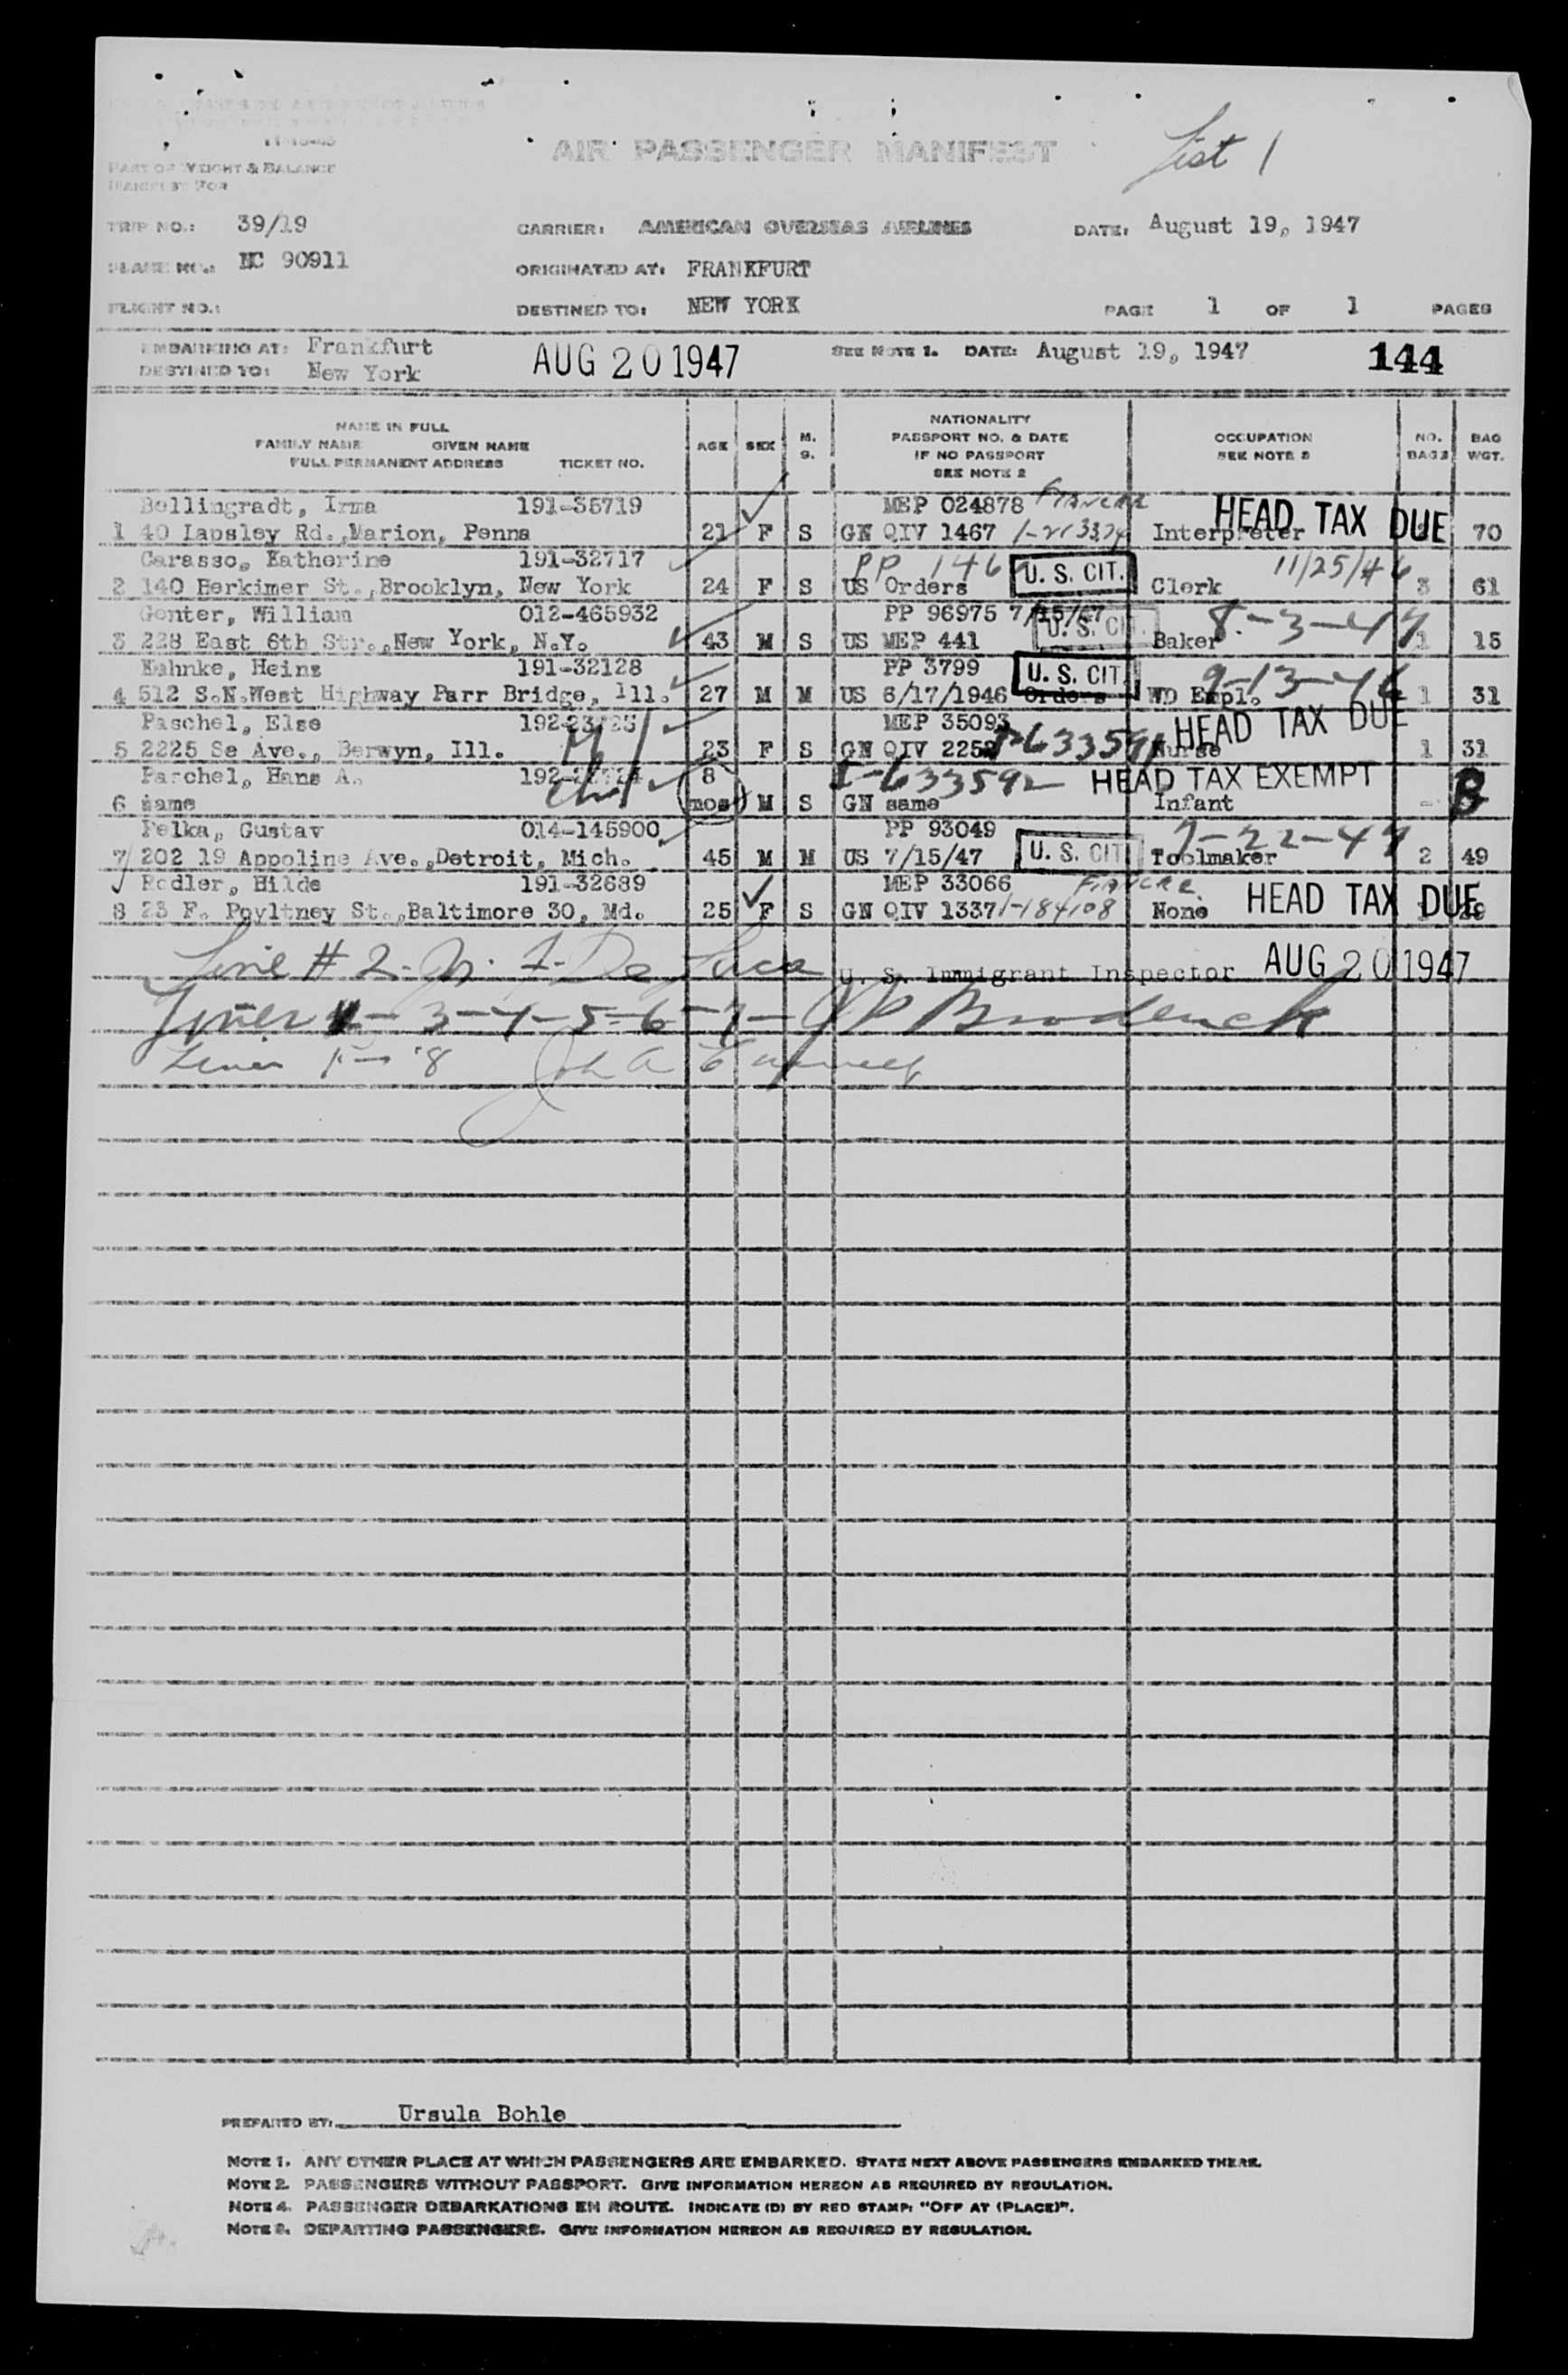 11-15-45
AIR PASSENGER MANIFEST
List 1
PART OF WEIGHT & BALANCE
MANIFEST FOR
TRIP NO.: 39/19 CARRIER: AMERICAN OVERSEAS AIRLINES DATE: August 19, 1947
PLANE NO.: NC 90911 ORIGINATED AT: FRANKFURT
FLIGHT NO.: DESTINED TO: NEW YORK PAGE 1 OF 1 PAGES
EMBARKING AT: Frankfurt AUG 20 1947 SEE NOTE 1. DATE: August 19, 1947 144
DESTINED TO: New York
NAME IN FULL
FAMILY NAME GIVEN NAME
FULL PERMANENT ADDRESS TICKET NO.
AGE SEX M. S.
NATIONALITY
PASSPORT NO. & DATE
IF NO PASSPORT
SEE NOTE 2
OCCUPATION
SEE NOTE 3
NO. BAGS
BAG WGT.
Bollingradt, Irma 191-35719 MEP 024878 FIANCEE HEAD TAX DUE
1 40 Lapsley Rd., Marion, Penna 21 F S GN QIV 1467 Interpreter 70
Carasso, Katherine 191-32717 PP 146 U. S. CIT. 11/25/46
2 140 Herkimer St., Brooklyn, New York 24 F S US Orders Clerk 3 61
Genter, William 012-465932 PP 96975 7/15/47 U. S. CIT. 8-3-47
3 228 East 6th Str., New York, N.Y. 43 M S US MEP 441 Baker 1 15
Kahnke, Heinz 191-32128 PP 3799 U. S. CIT. 9-13-46
4 512 S.N.West Highway Parr Bridge, Ill. 27 M M US 6/17/1946 Orders WD Empl. 1 31
Paschel, Else MEP 35093 I-633591 HEAD TAX DUE
5 2225 Se Ave., Berwyn, Ill. 23 F S GN QIV 2252 Nurse 1 31
Parchel, Hans A. 8 I-633592 HEAD TAX EXEMPT
6 same mos M S GN same Infant -
Pelka, Gustav 014-145900 PP 93049 U. S. CIT. 7-22-47
7 202 19 Appoline Ave., Detroit, Mich. 45 M M US 7/15/47 Toolmaker 2 49
Rodler, Hilde 191-32689 MEP 33066 FIANCEE HEAD TAX DUE
8 23 F. Poyltney St., Baltimore 30, Md. 25 F S GN QIV 1337 I-184108 None
Line # 2- U. S. Immigrant Inspector AUG 20 1947
Lines 3-4-5-6-7-
Lines 1 - 8 John A
PREPARED BY: Ursula Bohle
NOTE 1. ANY OTHER PLACE AT WHICH PASSENGERS ARE EMBARKED. STATE NEXT ABOVE PASSENGERS EMBARKED THERE.
NOTE 2. PASSENGERS WITHOUT PASSPORT. GIVE INFORMATION HEREON AS REQUIRED BY REGULATION.
NOTE 4. PASSENGER DEBARKATIONS EN ROUTE. INDICATE (D) BY RED STAMP: "OFF AT (PLACE)".
NOTE 3. DEPARTING PASSENGERS. GIVE INFORMATION HEREON AS REQUIRED BY REGULATION.